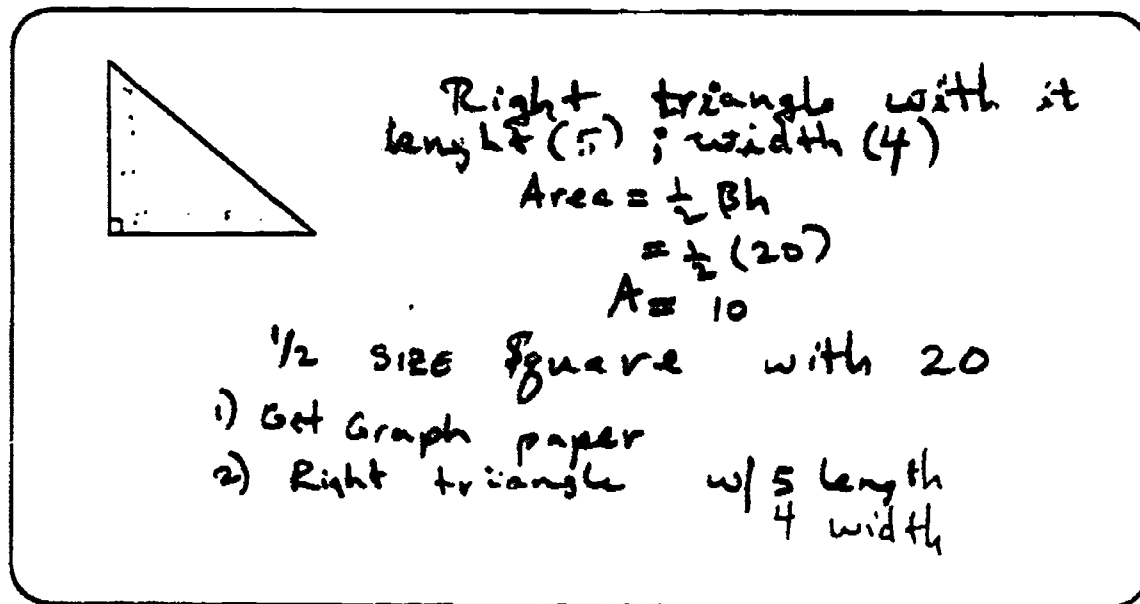 Right triangle with it
lenght (5) ; width (4)
Area = 1/2 Bh
= 1/2 (20)
A = 10
1/2 SIZE Square with 20
1) Get Graph paper
2) Right triangle w/ 5 length
4 width